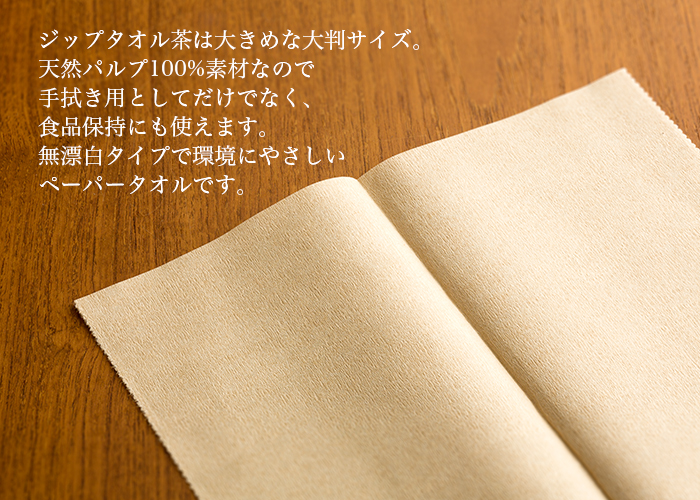 ジップタオル茶は大きめな大判サイズ。
天然パルプ100%素材なので
手拭き用としてだけでなく、
食品保持にも使えます。
無漂白タイプで環境にやさしい
ペーパータオルです。